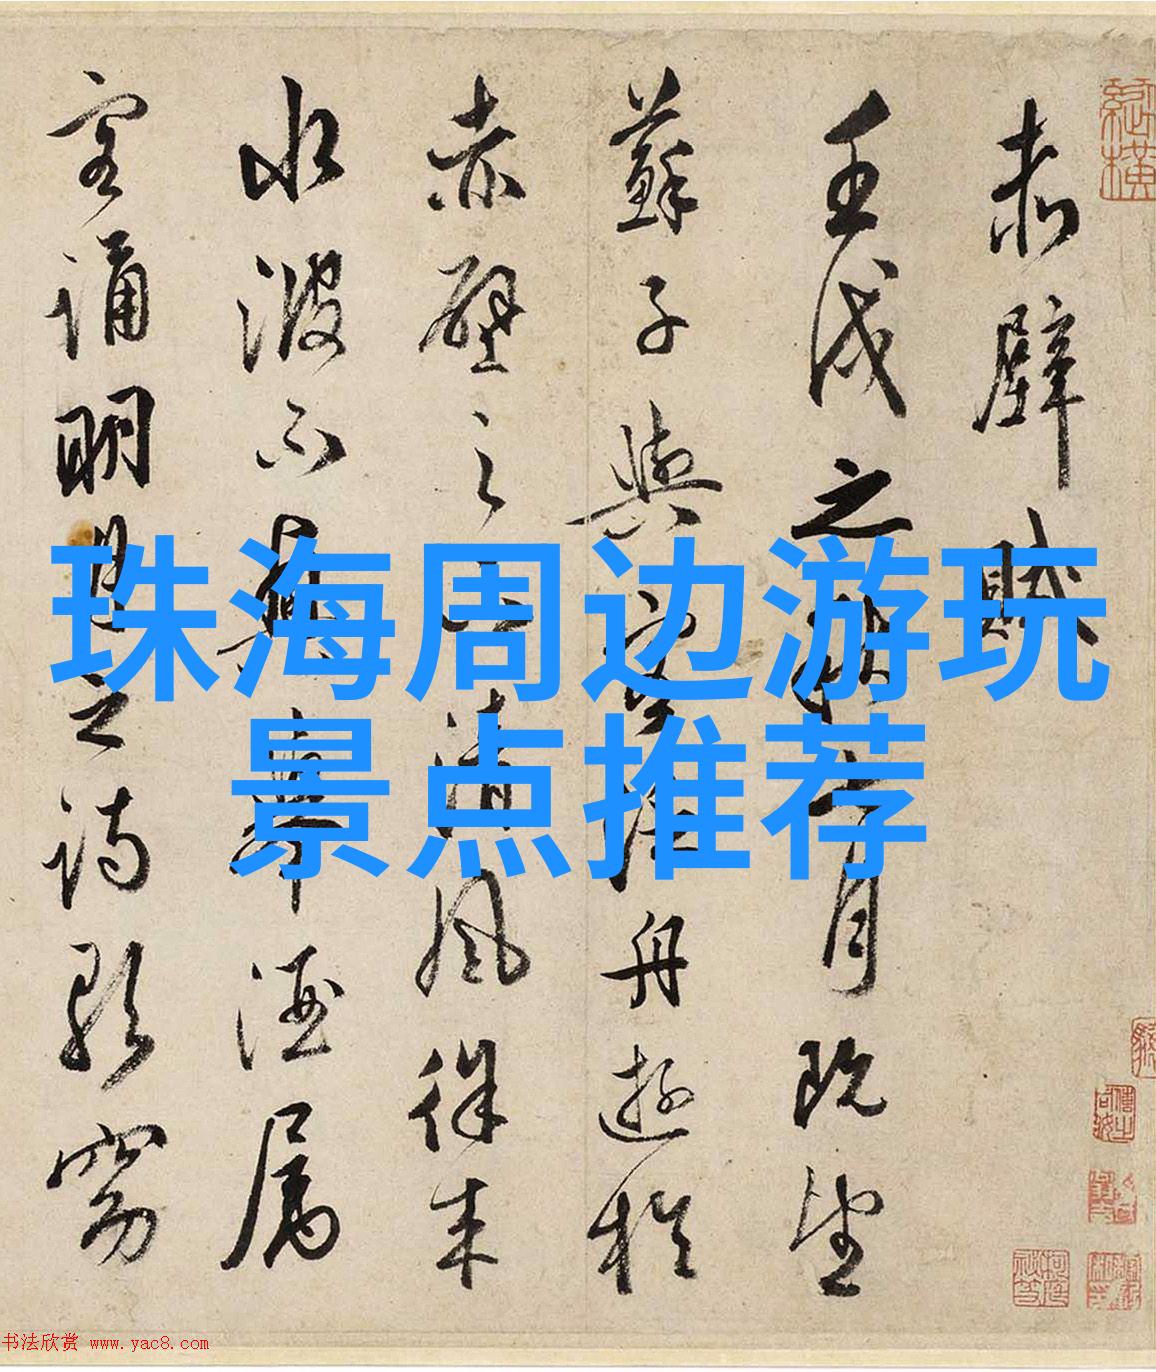 赤壁賦
壬戌之秋七月既望
蘇子與客泛舟遊於
赤壁之下清風徐来
水波不興舉酒属
客誦明月之詩歌窈
珠海周边游玩
景点推荐
书法欣赏 www.yac8.com